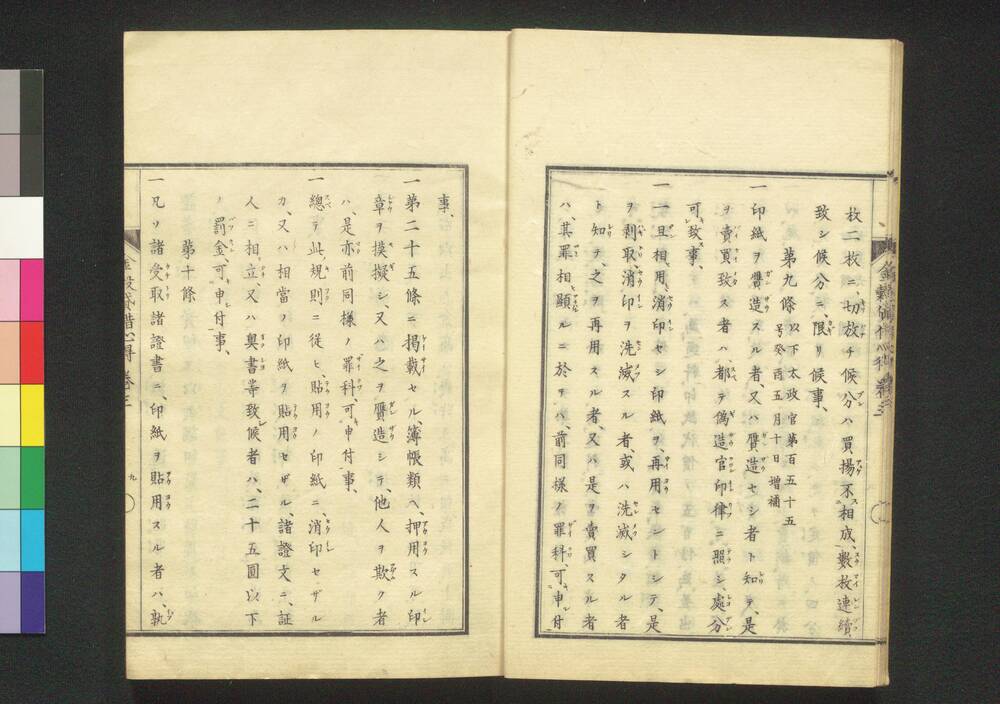 枚二枚ニ、切放チ候分ハ買揚不相成、數枚連續
致シ候分ニ、限リ候事、
第九條 以下太政官第百五十五
号癸酉五月十日増補
一印紙ヲ贋造スル者、又ハ贋造セシ者ト知テ、是
ヲ賣買致ス者ハ、都テ偽造官印律ニ照シ、處分
可致事、
一一旦相用、消印セシ印紙ヲ、再用セントシテ、是
ヲ剥取、消印ヲ洗滅スル者、或ハ洗滅シタル者
ト知テ、之ヲ再用スル者、又ハ是ヲ賣買スル者
ハ、其罪相顯ルニ於テハ、前同様ノ罪科、可申付
事、
一第二十五條ニ掲載セル、簿帳類ヘ、押用スル印
章ヲ摸擬シ、又ハ之ヲ贋造シテ、他人ヲ欺ク者
ハ、是亦前同様ノ罪科、可申付事、
一總テ此規則ニ從ヒ、貼用ノ印紙ニ、消印セザル
カ、又ハ相當ノ印紙ヲ貼用セザル、諸證文ニ、証
人ニ相立、又ハ奥書等致候者ハ、二十五圓以下
ノ罰金、可申付事、
第十條
一凡ソ諸受取諸證書ニ、印紙ヲ貼用スル者ハ、孰
心得 巻三
九